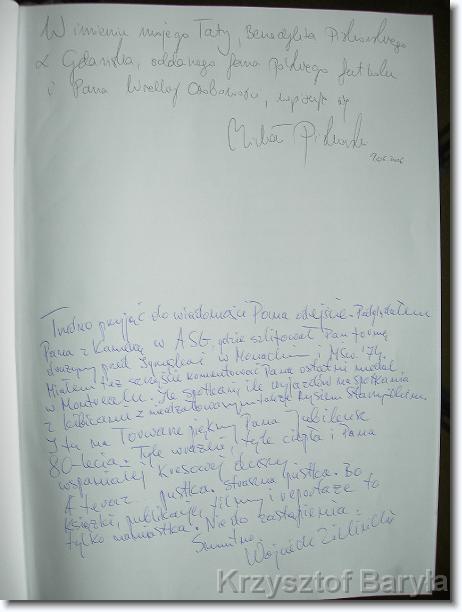 W imieniu mojego Taty, Benedykta Piskorskiego
z Gdańska, oddanego fana polskiego futbolu
i Pana Wielkiej Osobowości, wpisuje się
Michał
Trudno przyjąć do wiadomości Pana odejście. Podglądałem
Pana z kamerą w ASG, gdzie szlifował Pan formę
drużyny przed Igrzyskami w Monachium, i MŚw. 74.
Miałem też szczęście komentować Pana ostatni medal
w Montrealu. Ile spotkań, ile wyjazdów na spotkania
z kibicami z nieodżałowanym także Rysiem
I tu na Torwarze piękny Pana Jubileusz
80-lecia. Tyle wrażeń, tyle ciepła i Pana
wspaniałej Kresowej duszy
A teraz pustka. straszna pustka. Bo
książki, publikacje, filmy i reportaże to
tylko namiastka. Nie do zastąpienia.
Smutno.
Wojciech Zieliński
Krzysztof Baryła